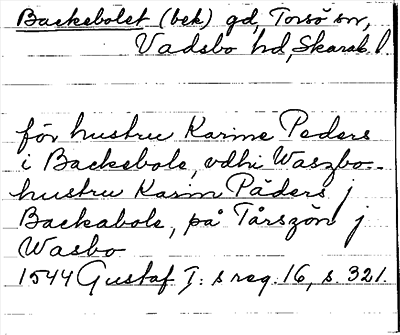 Backebolet (bek) gd, Torsö sn,
Vadsbo hd, Skarab. l
för hustru Karine Peders
i Backebole, vdhi Waszbo -
hustru Karin Päders j
Backabole, på Tårszön j
Wasbo
1544 Gustaf I: s reg. 16, s. 321.